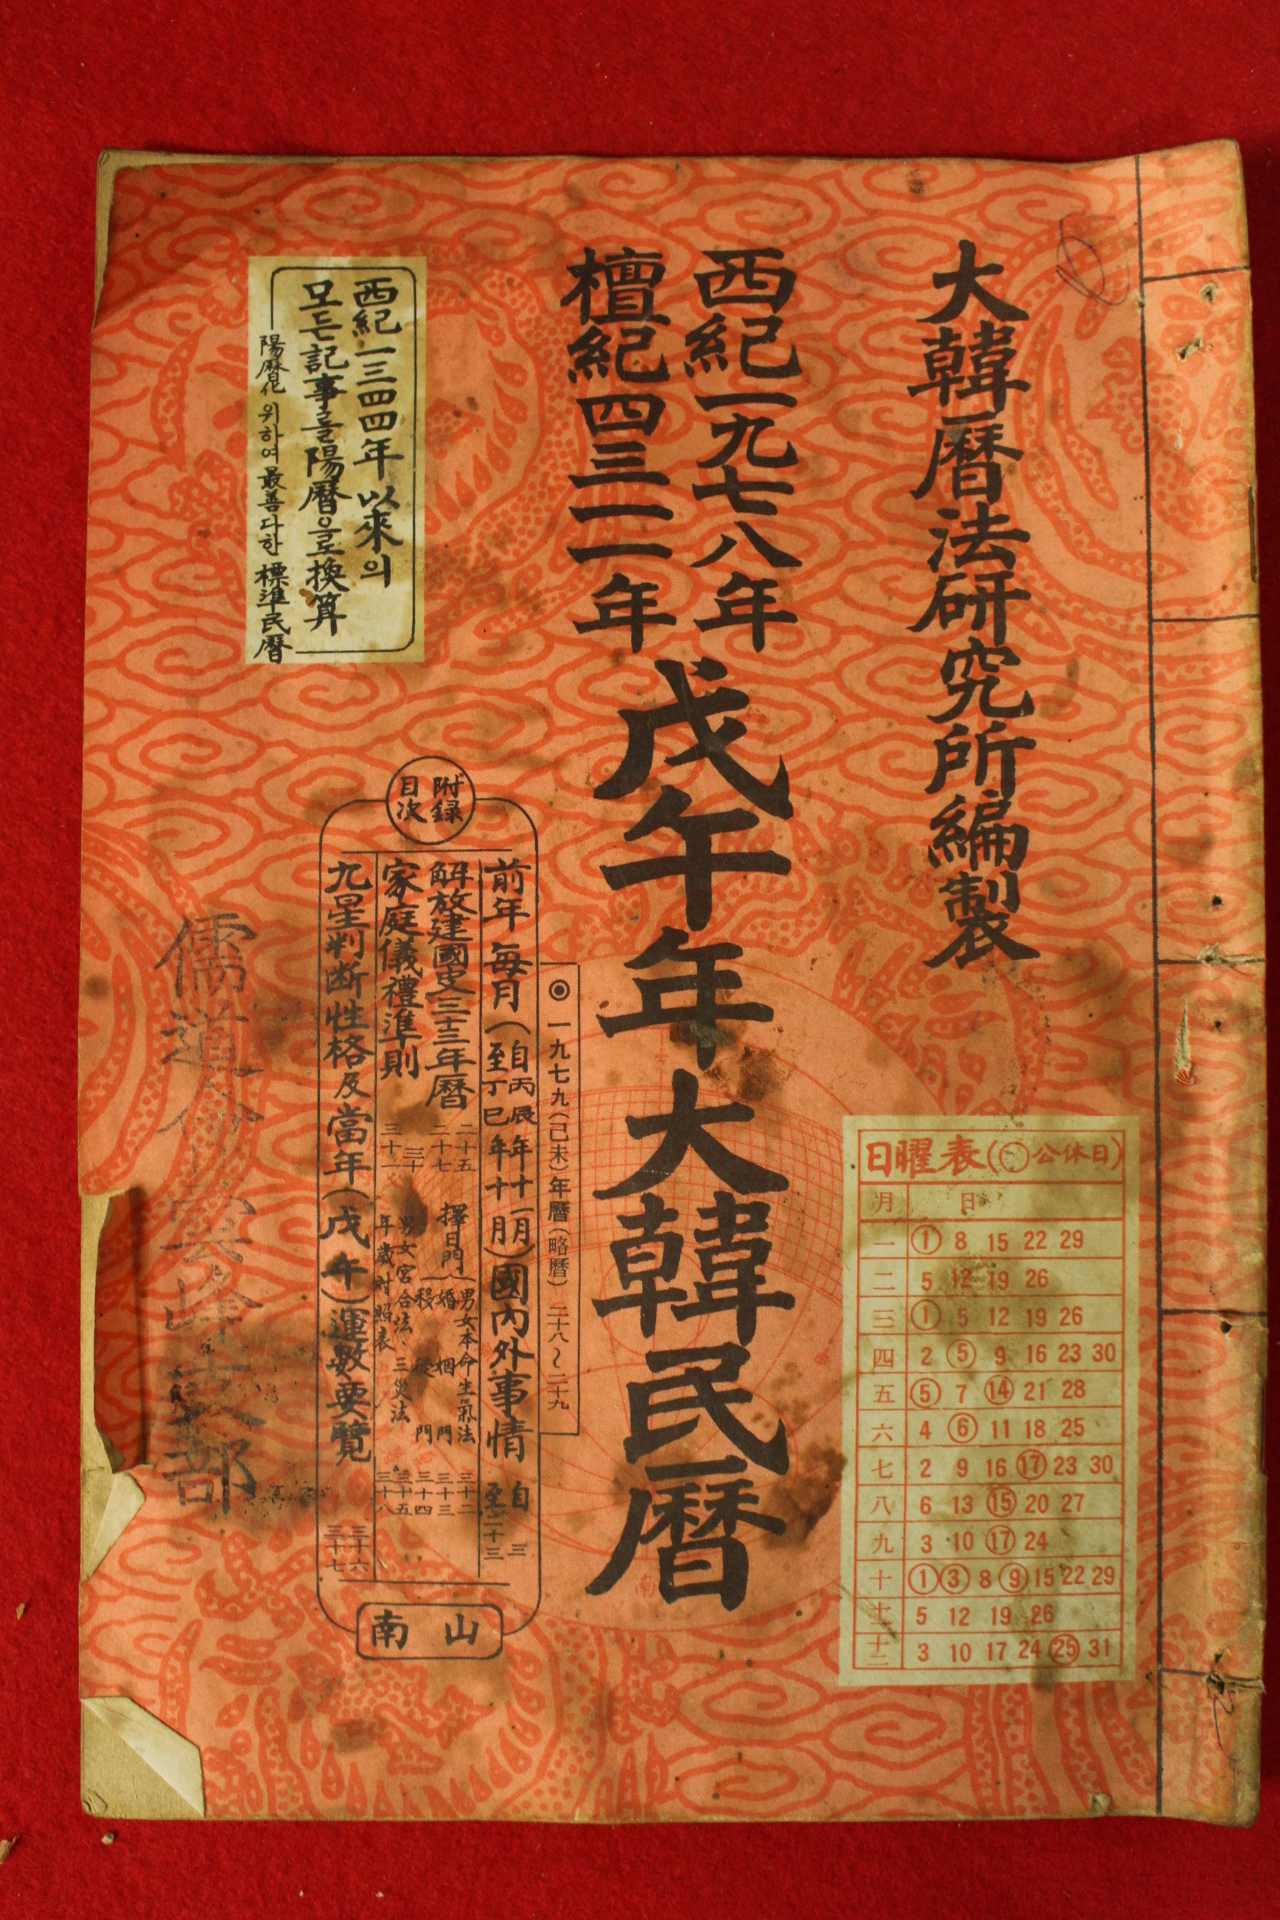 大韓曆法硏究所編製
西紀一九七八年
檀紀四三一一年
戊午年大韓民曆
西紀一三四四年以來의
모든記事를陽曆으로換算
陽曆化 위하여 最善 다한 標準民曆
附録
目次
◎ 一九七九(己未)年曆(略曆) 二十八~二十九
前年 每月(自丙辰年十一月
至丁巳年十月)國內外事情 自三
至二十三
解放建國史三十三年曆 二十五
二十七
擇日門(男女本命生氣法 三十二
婚姻門 三十三
移徙門 三十四
家庭儀禮準則 三十
三十一
男女宮合法、三災法 三十五
年歲対照表 三十八
九星判斷性格及當年(戊午)運數要覽 三十六
三十七
南山
日曜表(○公休日)
月 日
一 1 8 15 22 29
二 5 12 19 26
三 1 5 12 19 26
四 2 5 9 16 23 30
五 5 7 14 21 28
六 4 6 11 18 25
七 2 9 16 17 23 30
八 6 13 15 20 27
九 3 10 17 24
十 1 3 8 9 15 22 29
十一 5 12 19 26
十二 3 10 17 24 25 31
儒道會雲峰支部
南